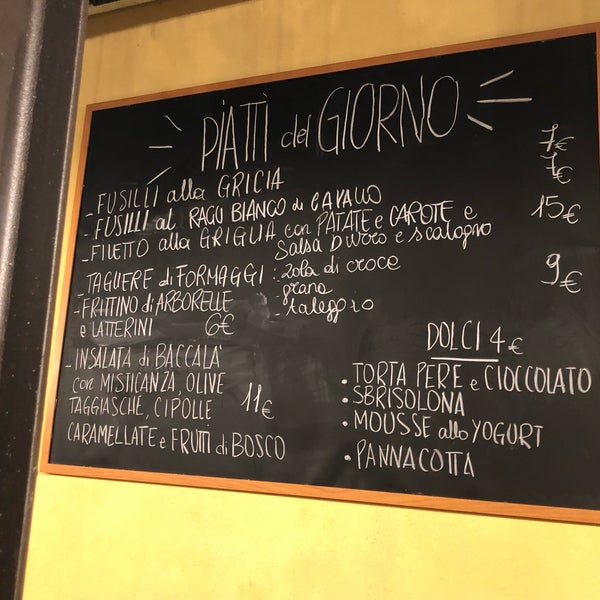 PiATTi del GIORNO
- FUSILLI alla GRICIA 7€
- FUSILLI al RAGÙ BIANCO di CAVALLO 7€
- FILETTO alla GRIGLIA con PATATE e CAROTE e 15€
salsa burro e scalogno
- TAGLIERE di FORMAGGI : - zola di croce 9€
- grana
- taleggio
- FRITTINO di ARBORELLE
e LATTERINI 6€
- INSALATA di BACCALA'
con MISTICANZA, OLIVE
TAGGIASCHE, CIPOLLE 11€
CARAMELLATE e FRUTTI di BOSCO
DOLCI 4€
• TORTA PERE e CIOCCOLATO
• SBRISOLONA
• MOUSSE allo YOGURT
• PANNACOTTA